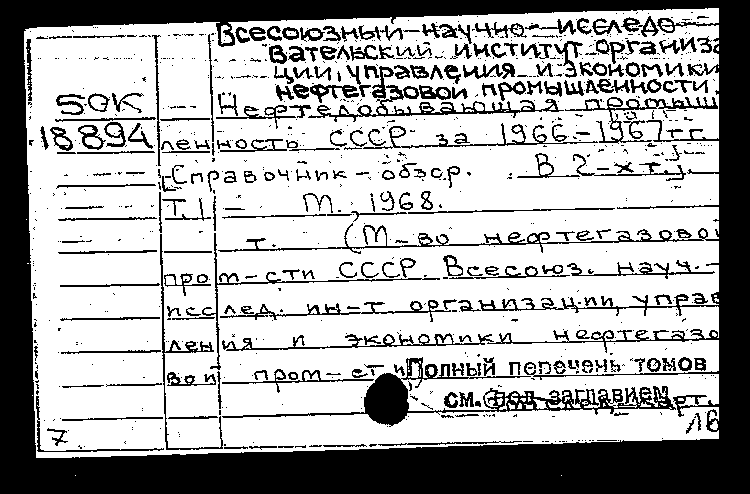 Всесоюзный научно-исследо-
вательский институт организа
ции, управления и экономики
нефтегазовой промышленности.
5GK — Нефтедобывающая промыш
18894 ленность СССР за 1966-1967гг.
[Справочник-обзор. В 2-х т.].
Т.1 — М., 1968.
т. (М-во нефтегазовой
пром-сти СССР. Всесоюз. науч.-
исслед. ин-т организации, управ
ления и экономики нефтегазо
вой пром-сти
Полный перечень томов
см. под заглавием
след. карт.
7
16